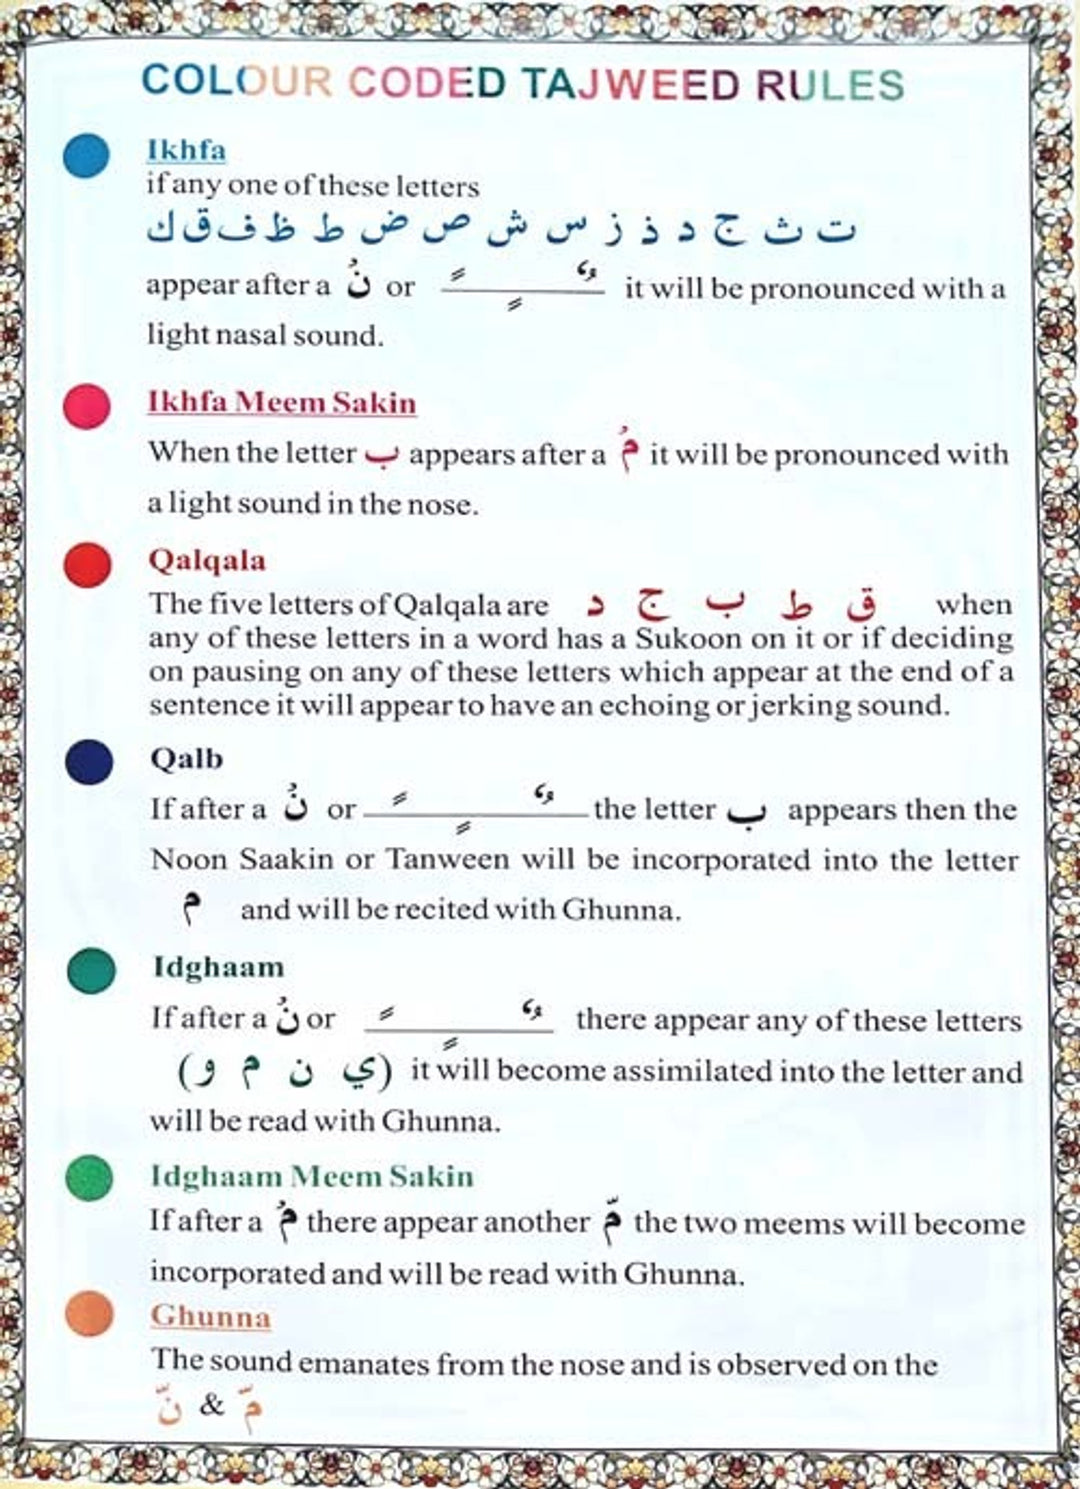 COLOUR CODED TAJWEED RULES
Ikhfa
if any one of these letters
ت ث ج د ذ ز س ش ص ض ط ظ ف ق ك
appear after a نْ or ـًـ ـٍـ ـٌـ it will be pronounced with a
light nasal sound.
Ikhfa Meem Sakin
When the letter ب appears after a مْ it will be pronounced with
a light sound in the nose.
Qalqala
The five letters of Qalqala are د ج ب ط ق when
any of these letters in a word has a Sukoon on it or if deciding
on pausing on any of these letters which appear at the end of a
sentence it will appear to have an echoing or jerking sound.
Qalb
If after a نْ or ـًـ ـٍـ ـٌـ the letter ب appears then the
Noon Saakin or Tanween will be incorporated into the letter
م and will be recited with Ghunna.
Idghaam
If after a نْ or ـًـ ـٍـ ـٌـ there appear any of these letters
(ي ن م و) it will become assimilated into the letter and
will be read with Ghunna.
Idghaam Meem Sakin
If after a مْ there appear another مّ the two meems will become
incorporated and will be read with Ghunna.
Ghunna
The sound emanates from the nose and is observed on the
نّ & مّ